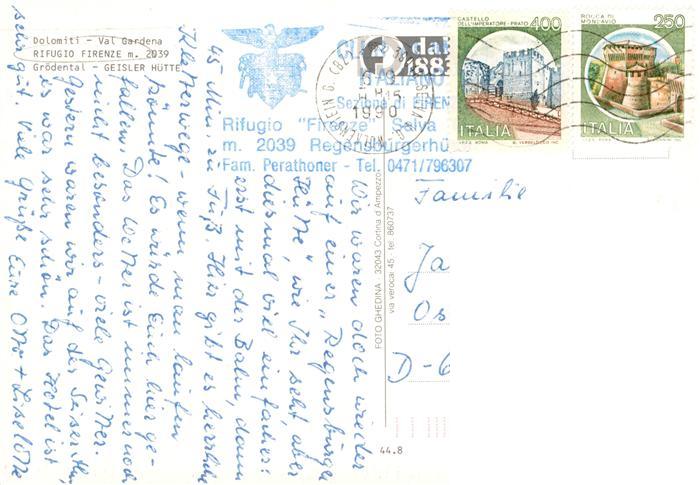 Dolomiti - Val Gardena
RIFUGIO FIRENZE m. 2039
Grödental - GEISLER HÜTTE
Wir waren doch wieder
auf einer "Regensburger
Hütte", wie Ihr seht, aber
diesmal viel einfacher:
erst mit der Bahn, dann
45 Min. zu Fuß. Hier gibt es herrliche
Kletterwege - wenn man laufen
könnte! Es würde Euch hier ge-
fallen! Das Wetter ist immer noch
nicht besonders - viele Gewitter.
Gestern waren wir auf der Seiser Alm,
es war sehr schön. Das Hotel ist
sehr gut. Viele Grüße Eure Otto + Liselotte
Sezione di FIREN
Rifugio "Firenze" Selva
m. 2039 Regensburgerhü
Fam. Perathoner - Tel. 0471/796307
1990
'88
CASTELLO
DELL'IMPERATORE - PRATO
400
ITALIA
ROCCA DI
MONDAVIO
250
ITALIA
FOTO GHEDINA - 32043 Cortina d'Ampezzo
via verocai 45 - tel. 860737
Familie
Ja
Os
D-6
44.8